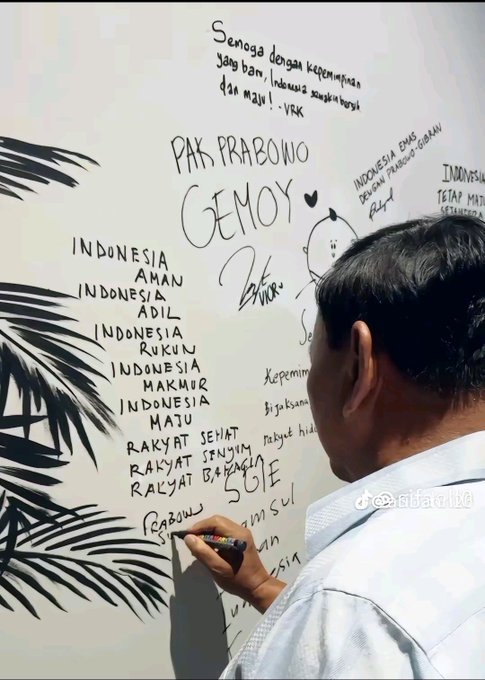 Semoga dengan kepemimpinan
yang baru, Indonesia semakin bersih
dan maju! -VRK
PAK PRABOWO
GEMOY
INDONESIA EMAS
DENGAN PRABOWO-GIBRAN
INDONESIA
TETAP MAJU
INDONESIA
AMAN
INDONESIA
ADIL
INDONESIA
RUKUN
INDONESIA
MAKMUR
INDONESIA
MAJU
RAKYAT SEHAT
RAKYAT SENYUM
RAKYAT BAHAGIA
PRABOWO
Kepemim
Bijaksana
rakyat hid
SGIE